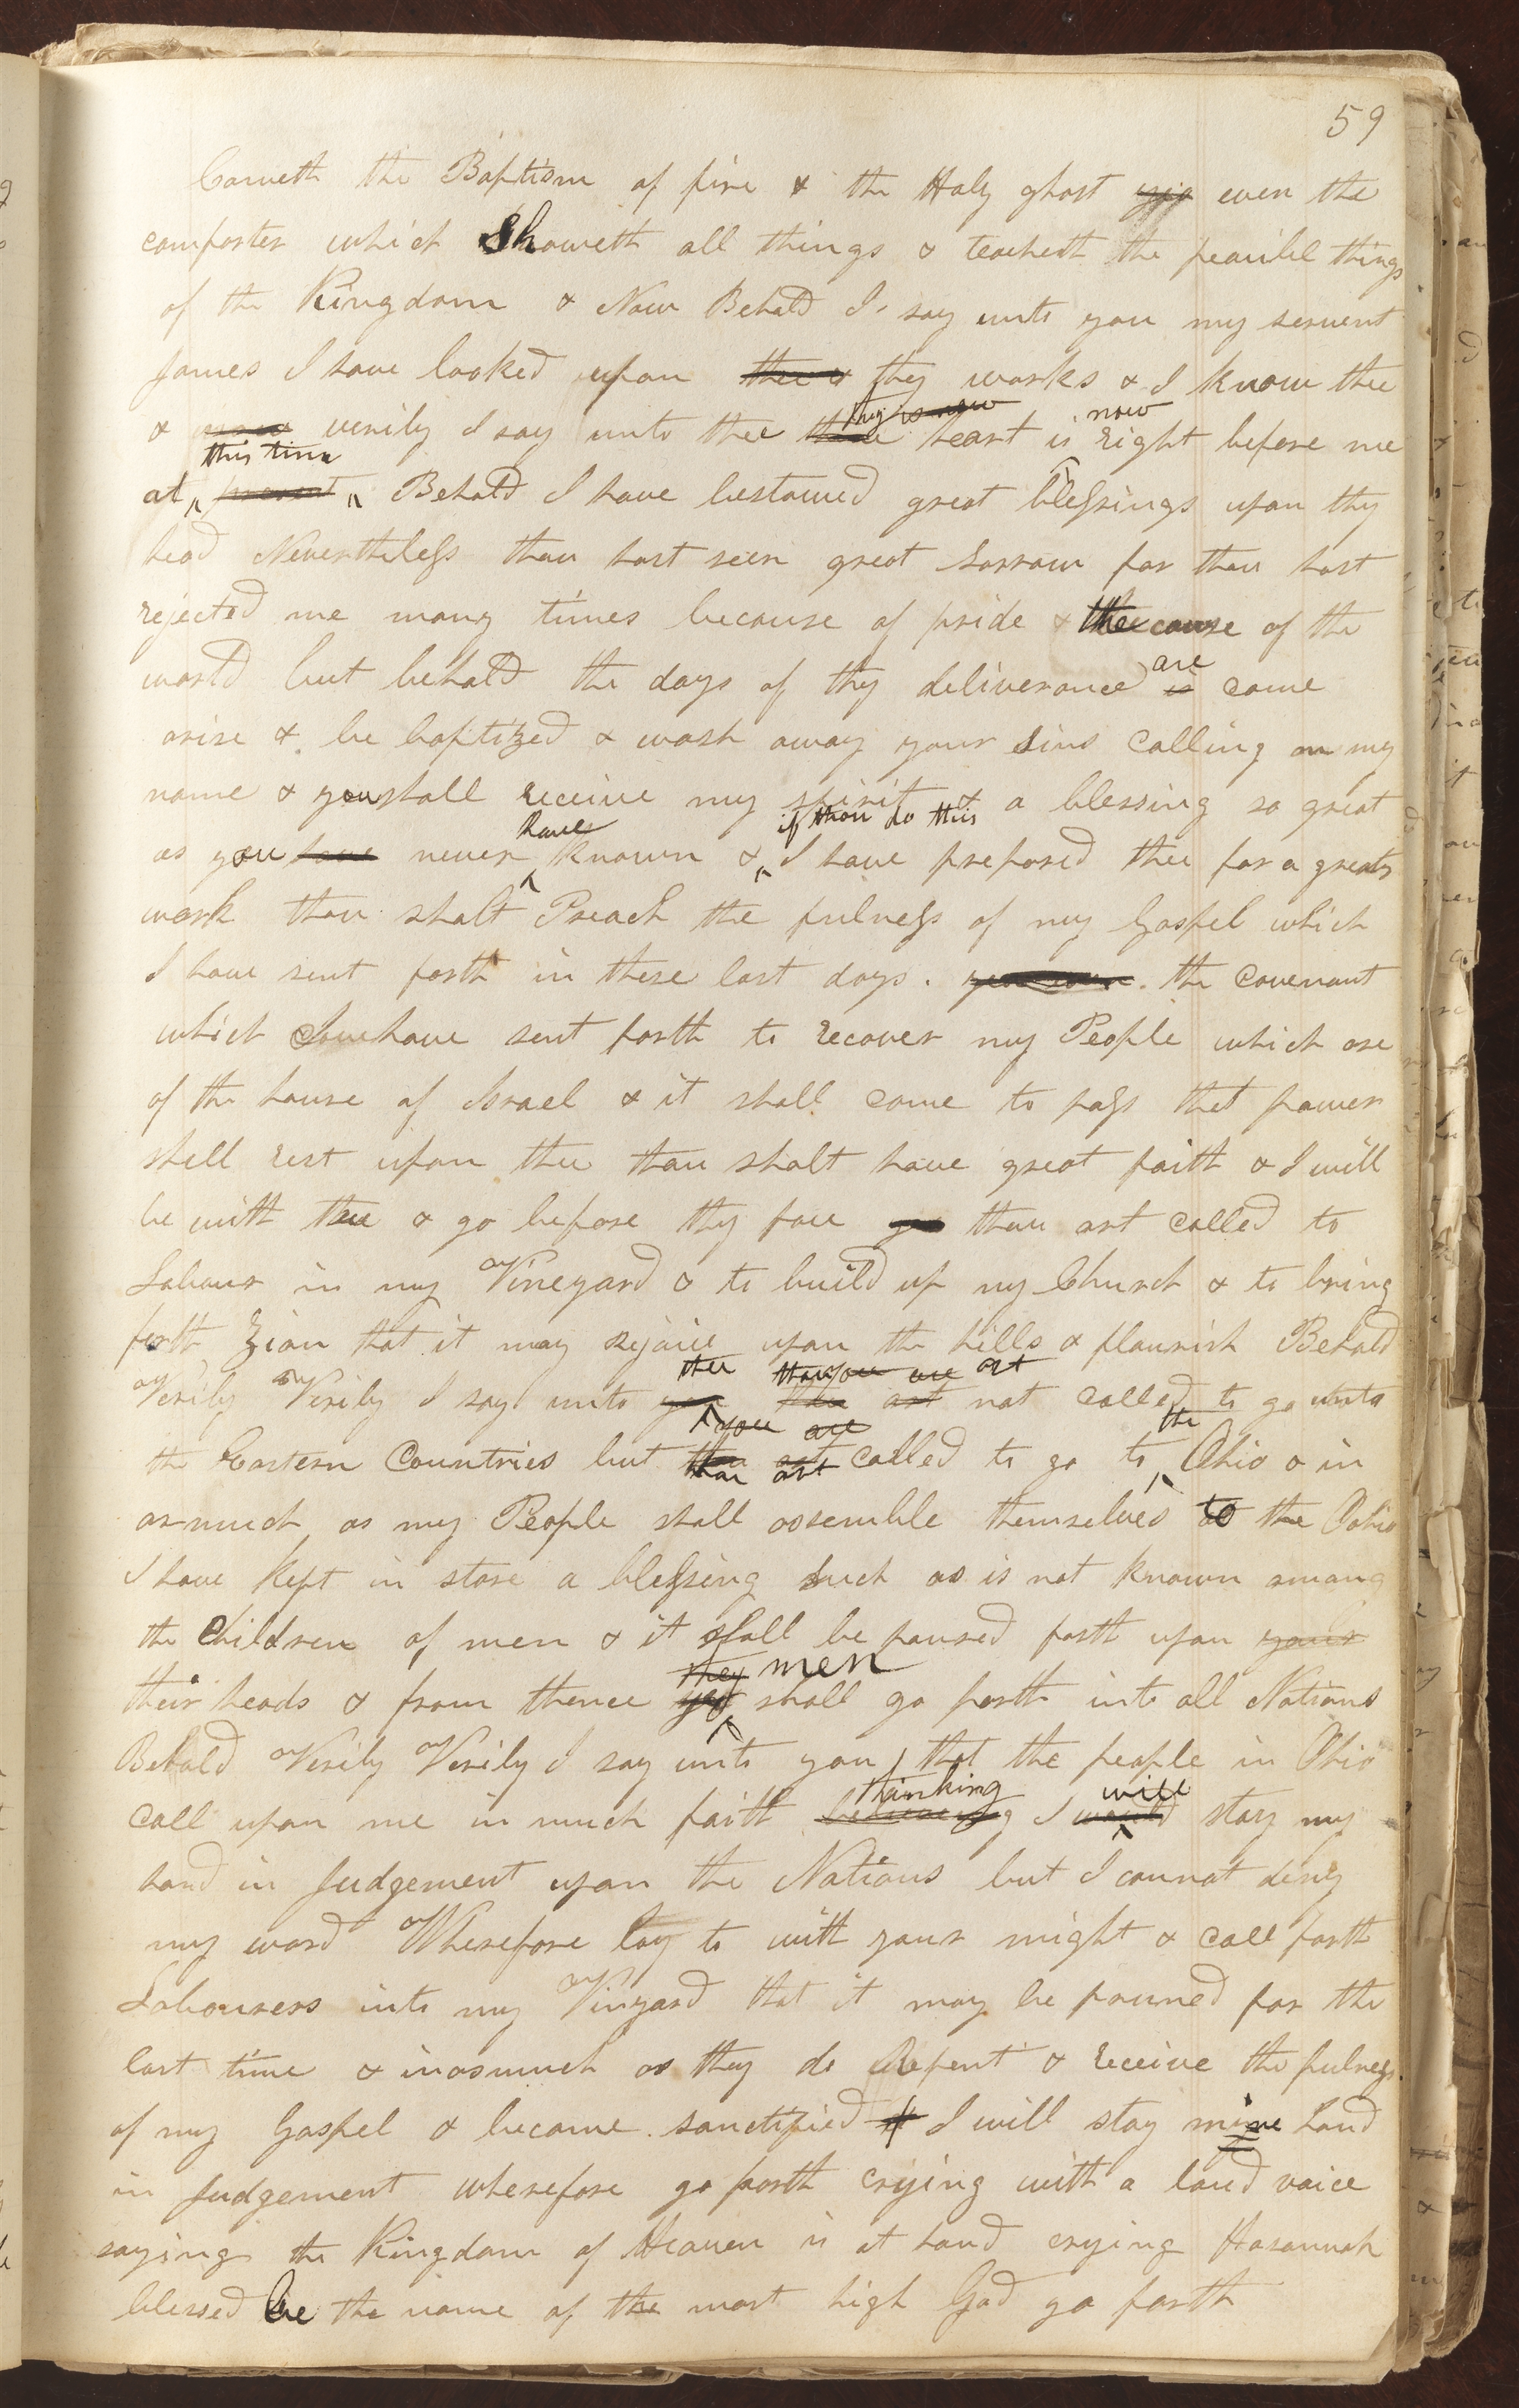 59
Cometh the Baptism of fire & the Holy ghost yea even the
comforter which Showeth all things & teacheth the peacibl things
of the Kingdom & Now Behold I say unto you my servent
James I have looked upon thee & thy works & I know thee
& verily I say unto thee thine thy is now heart is now right before me
at this time present Behold I have bestowed great blessings upon thy
head Nevertheless thou hast seen great sorrow for thou hast
rejected me many times because of pride & the cause of the
world but behold the days of thy deliverance is are come
arise & be baptized & wash away your sins calling on my
name & you shall receive my spirit & a blessing so great
as you have never have known & if thou do this I have prepared thee for a greater
work thou shalt Preach the fulness of my Gospel which
I have sent forth in these last days. the covenant
which I have sent forth to recover my People which are
of the house of Israel & it shall come to pass that power
shall rest upon thee thou shalt have great faith & I will
be with thee & go before thy face thou art called to
Labour in my Vineyard & to build up my Church & to bring
forth Zion that it may rejoice upon the hills & flourish Behold
Verily Verily I say unto you thee thou art thou you are art not called to go unto
the Eastern Countries but thou art you are thou art called to go to the Ohio & in
asmuch as my People shall assemble themselves to the Oohio
I have kept in store a blessing such as is not known among
the Children of men & it shall be poured forth upon your
their heads & from thence ye they men shall go forth into all Nations
Behold Verily Verily I say unto you that the people in Ohio
call upon me in much faith believeing thinking I would will stay my
hand in Judgement upon the Nations but I cannot deny
my word Wherefore lay to with your might & call forth
Labourers into my Vinyard that it may be pruned for the
last time & inasmuch as they do Repent & receive the fulness
of my Gospel & become sanctified I will stay mine hand
in Judgement wherefore go forth crying with a loud voice
saying the Kingdom of Heaven is at hand crying Hosannah
blessed be the name of the most high God go forth